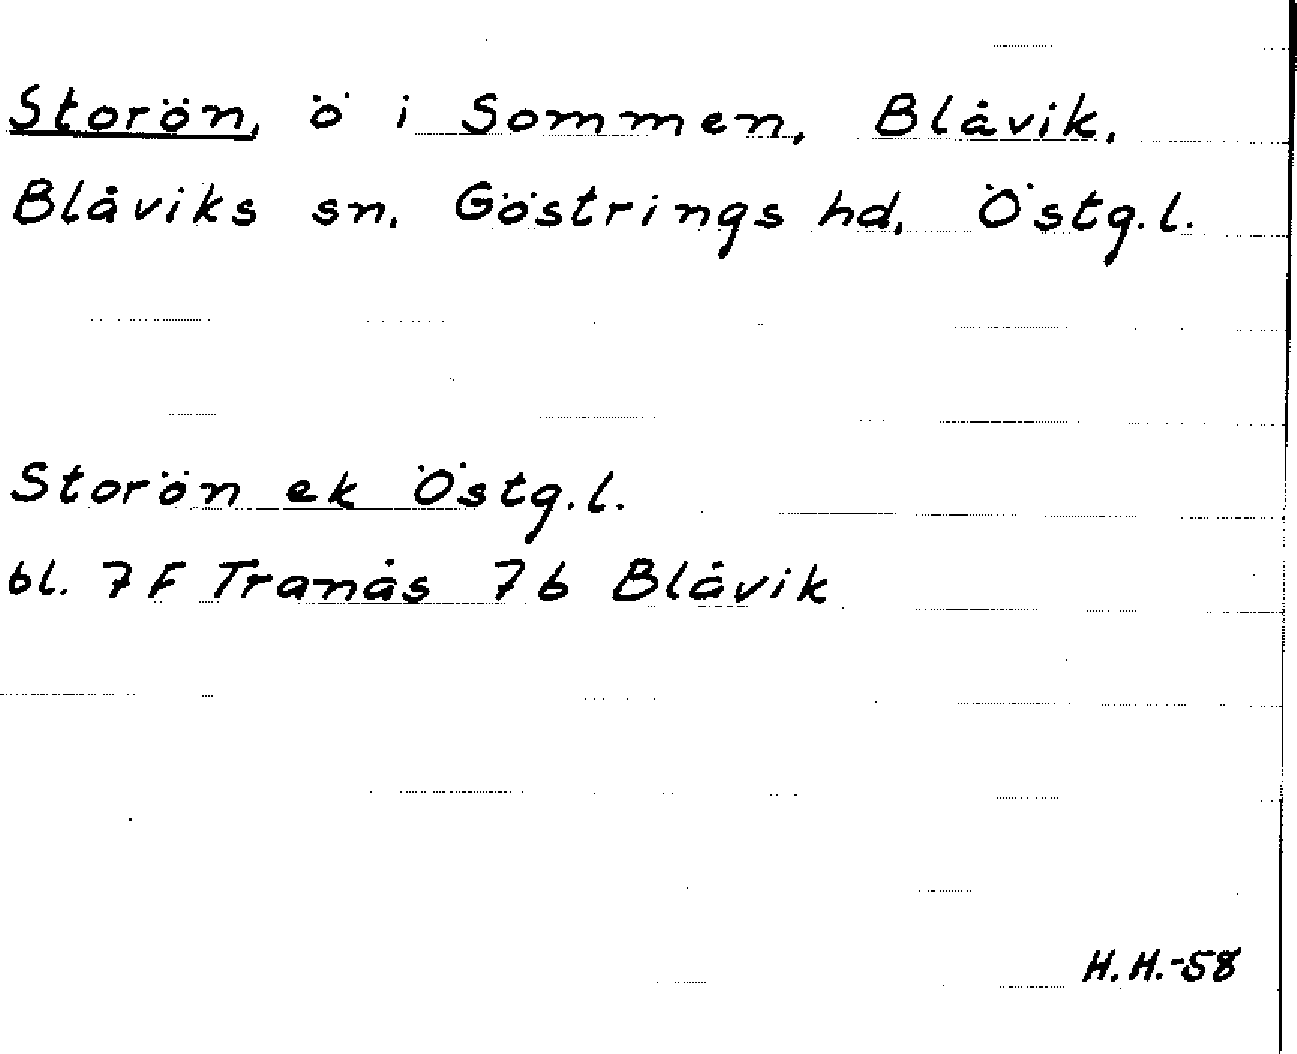 Storön, ö i Sommen, Blåvik,
Blåviks sn. Göstrings hd, Östg.l.
Storön ek Östg.l.
bl. 7F Tranås 7b Blåvik
H.H.-58